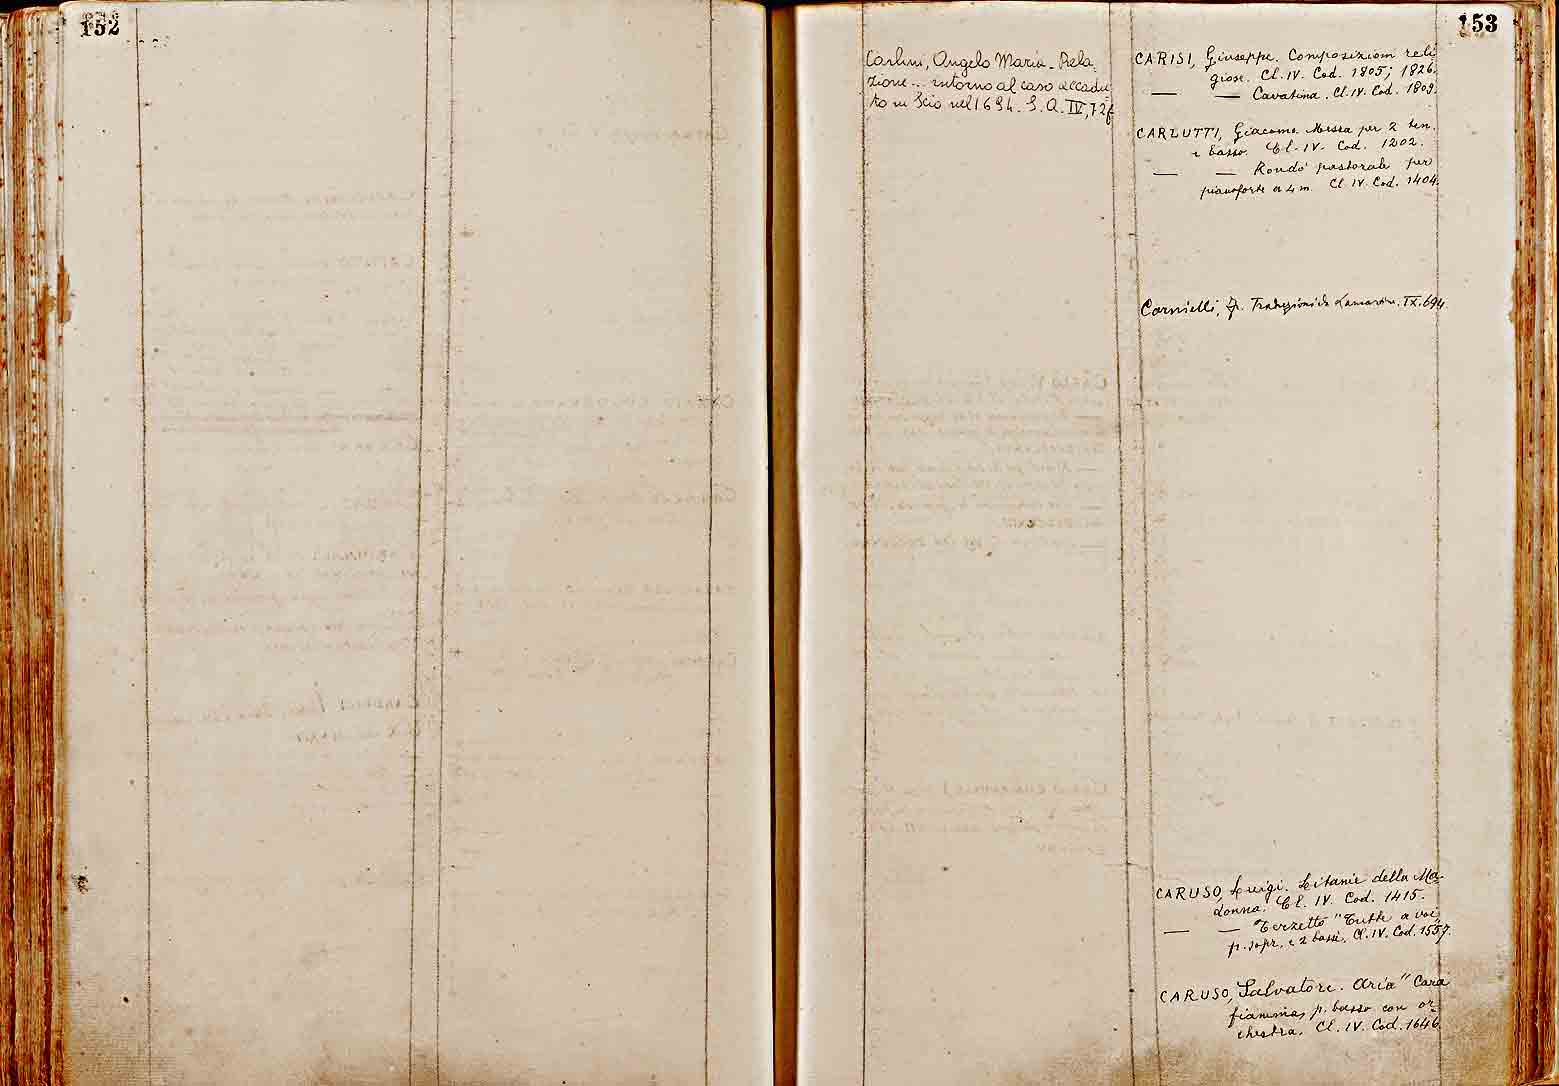 152
153
Carlini, Angelo Maria - Rela-
zione... intorno al caso accadu-
to in Scio nel 1694. S. Q. IV, 72f
CARISI, Giuseppe. Composizioni reli-
giose. Cl. IV. Cod. 1805; 1826.
— — Cavatina. Cl. IV. Cod. 1809.
CARLUTTI, Giacomo. Messa per 2 ten.
e basso. Cl. IV. Cod. 1202.
— — Rondò pastorale per
pianoforte a 4 m. Cl. IV. Cod. 1404.
Carnielli, Traduzioni da Lamartine. IX. 694
CARUSO, Luigi. Litanie della Ma-
donna. Cl. IV. Cod. 1415.
— — Terzetto "Tutte a voi"
p. sopr. e 2 bassi. Cl. IV. Cod. 1557.
CARUSO, Salvatore. Aria "Cara
fiamma" p. basso con or-
chestra. Cl. IV. Cod. 1646.